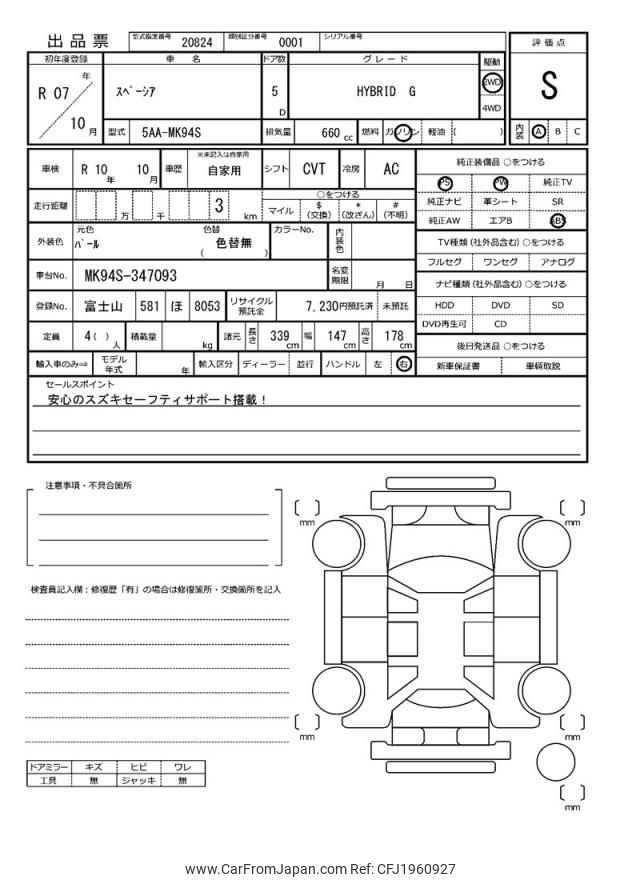 出品票
型式指定番号 20824 類別区分番号 0001 シリアル番号
初年度登録 車名 ドア数 グレード 駆動 評価点
R 07 年 10 月
スペーシア 5 D HYBRID G 2WD 4WD S
型式 5AA-MK94S 排気量 660 cc 燃料 ガソリン 軽油 ( ) 内装 A B C
車検 R 10 年 10 月 車歴 ※未記入は自家用 自家用 シフト CVT 冷房 AC
走行距離 万 千 3 km ○をつける
マイル $(交換) *(改ざん) #(不明)
外装色 元色 パール 色替 色替無 ( ) カラーNo. 内装色
車台No. MK94S-347093 名変期限 月 日
登録No. 富士山 581 ほ 8053 リサイクル預託金 7,230円預託済 未預託
定員 4( ) 人 積載量 kg 諸元 長さ 339 cm 幅 147 cm 高さ 178 cm
輸入車のみ⇒ モデル年式 年 輸入区分 ディーラー 並行 ハンドル 左 右
純正装備品 ○をつける
PS PW 純正TV
純正ナビ 革シート SR
純正AW エアB ABS
TV種類 (社外品含む) ○をつける
フルセグ ワンセグ アナログ
ナビ種類 (社外品含む) ○をつける
HDD DVD SD
DVD再生可 CD
後日発送品 ○をつける
新車保証書 車輌取説
セールスポイント
安心のスズキセーフティサポート搭載！
注意事項・不具合箇所
検査員記入欄：修復歴「有」の場合は修復箇所・交換箇所を記入
mm
mm
mm
mm
mm
ドアミラー キズ ヒビ ワレ
工具 無 ジャッキ 無
www.CarFromJapan.com Ref: CFJ1960927